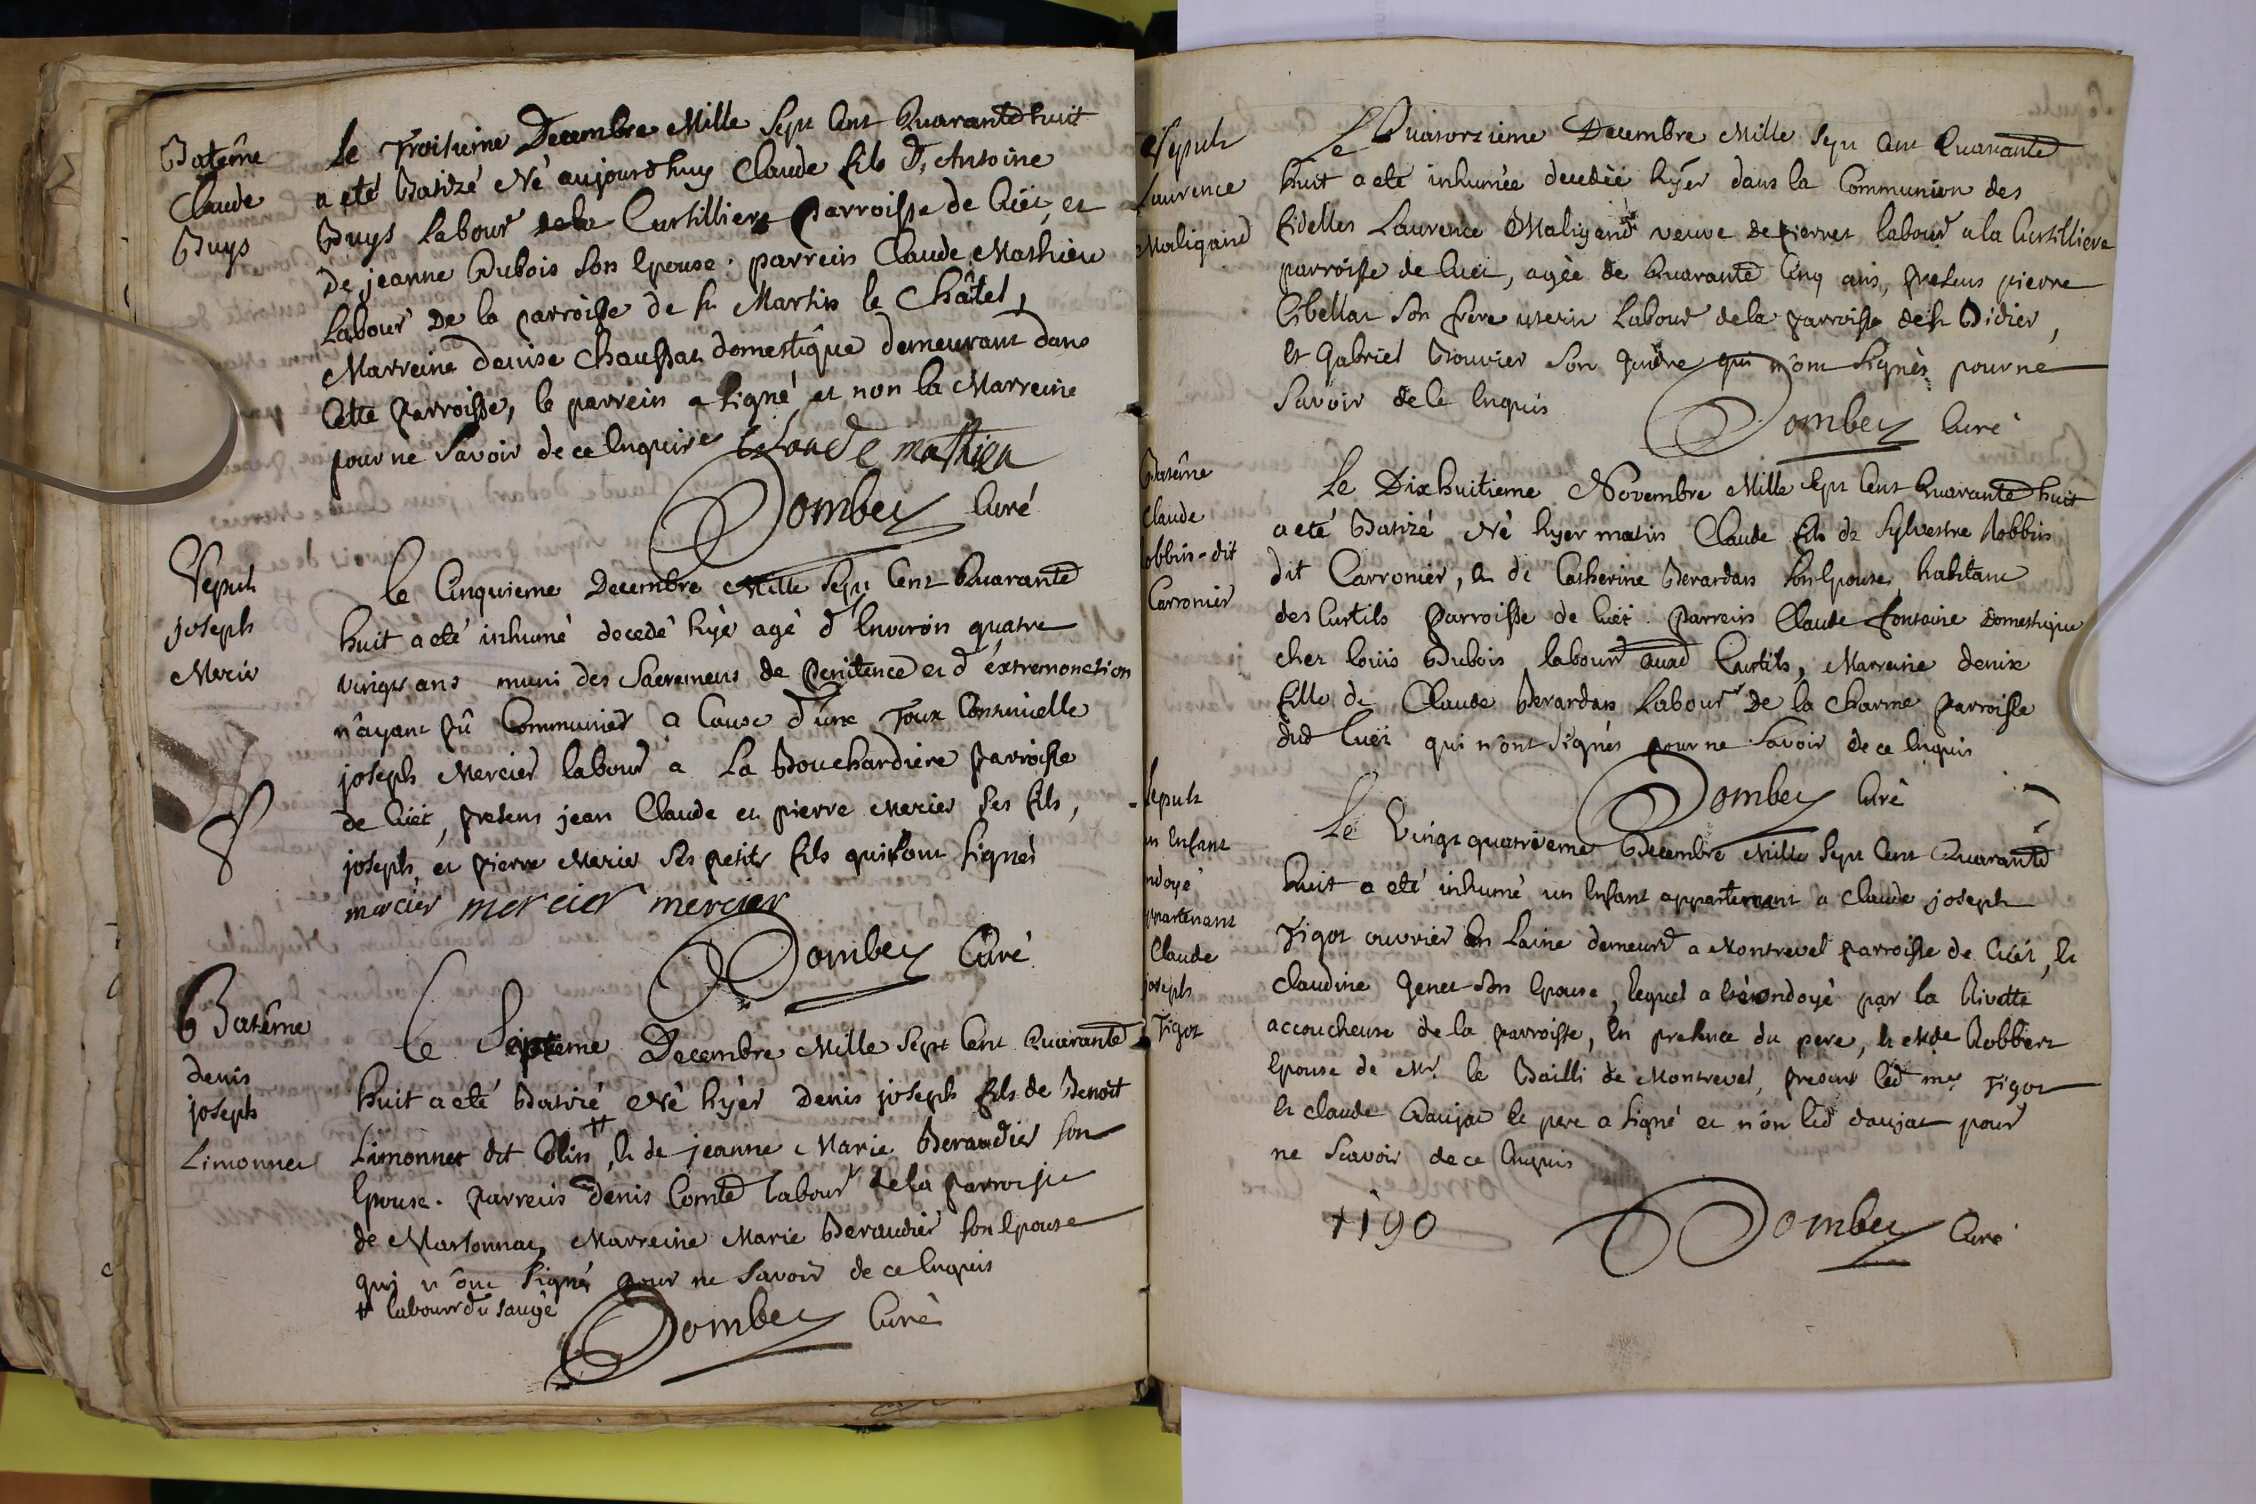 Batême
Claude
Buys
Le Troisieme Decembre Mille Sept Cent Quarante huit
a eté Batizé Né aujourd huy Claude fils D'Antoine
Buys Labour de la Curtilliere Parroisse de Cüet, et
De jeanne Dubois son Epouse. parrein Claude Mathieu
Labour De la parroisse de St Martin le Châtel,
Marreine denise Chaussat domestique demeurant dans
Cette Parroisse, le parrein a signé et non la Marreine
pour ne Savoir de ce Enquise Claude mathieu
Dombey Curé
Sepult
joseph
Mercier
le Cinquieme Decembre Mille Sept Cent Quarante
huit a eté inhumé decedé hyé agé d'Environ quatre
vingts ans muni des Sacremens de Penitence et d'extremonction
n'ayant pû Communier a Cause d'une Toux Continuelle
joseph Mercier labour a La Bouchardiere Parroisse
de Cüet, presens jean Claude et pierre Mercier ses fils,
joseph, et pierre Mercier ses petits fils qui sont signés
mercier mercier mercier
Dombey Curé
Batême
denis
joseph
Limonnet
Le Septieme Decembre Mille Sept Cent Quarante
huit a eté Batizé Né hyer denis joseph fils de Benoit
Limonnet dit Colin ++, et de jeanne Marie Beraudier son
Epouse. parrein denis Comte labour de la Parroisse
de Marsonnas, Marreine Marie Beraudier son Epouse
qui n'ont signé pour ne Savoir de ce Enquis
++ labour du Saugé
Dombey Curé
Sepult
Laurence
Maligand
Le Quatorzieme Decembre Mille Sept Cent Quarante
huit a eté inhumée decedée hyer dans la Communion des
fidelles Laurence Maligand veuve de pierret labour a la Curtilliere
parroisse de Cüet, agée de Quarante Cinq ans, presens pierre
Cibellat son frere uterin Labour de la parroisse de St Didier,
et Gabriel Bouvier son gendre qui n'ont signés pour ne
Savoir de Ce Enquis
Dombey Curé
Batême
Claude
obbin-dit
Carronier
Le Dixhuitieme Novembre Mille Sept Cent Quarante huit
a eté Batizé Né hyer matin Claude fils de Sylvestre Robbin
dit Carronier, et de Catherine Berardan son Epouse, habitans
des Curtils Parroisse de Cüet. Parrein Claude fontaine Domestique
chez loüis Dubois labour auxd Curtils, Marreine denise
fille de Claude Berardan Labour De la Charme Parroisse
dud Cuët qui n'ont signés pour ne Savoir de ce Enquis
Dombey Curé
Sepult
un Enfant
ndoyé
ppartenant
Claude
joseph
Tigot
Le Vingt quatrieme Decembre Mille Sept Cent Quarante
huit a eté inhumé un Enfant appartenant a Claude joseph
Tigot ouvrier en Laine demeurt a Montrevel parroisse de Cüet, et
claudine Genet son Epouse, lequel a été ondoyé par la Rivette
accoucheuse de la parroisse, en presence du pere, et Mde Robbert
Epouse de Mr. le Bailli de Montrevel, presens led Tigot
et claude Daujat le pere a signé et non led daujat pour
ne Scavoir de ce Enquis
tigo
Dombey Curé